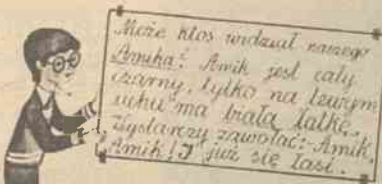 Może ktoś widział naszego
Amika? Amik jest cały
czarny, tylko na lewym
uchu ma białą łatkę.
Wystarczy zawołać: Amik,
Amik! I już się łasi.